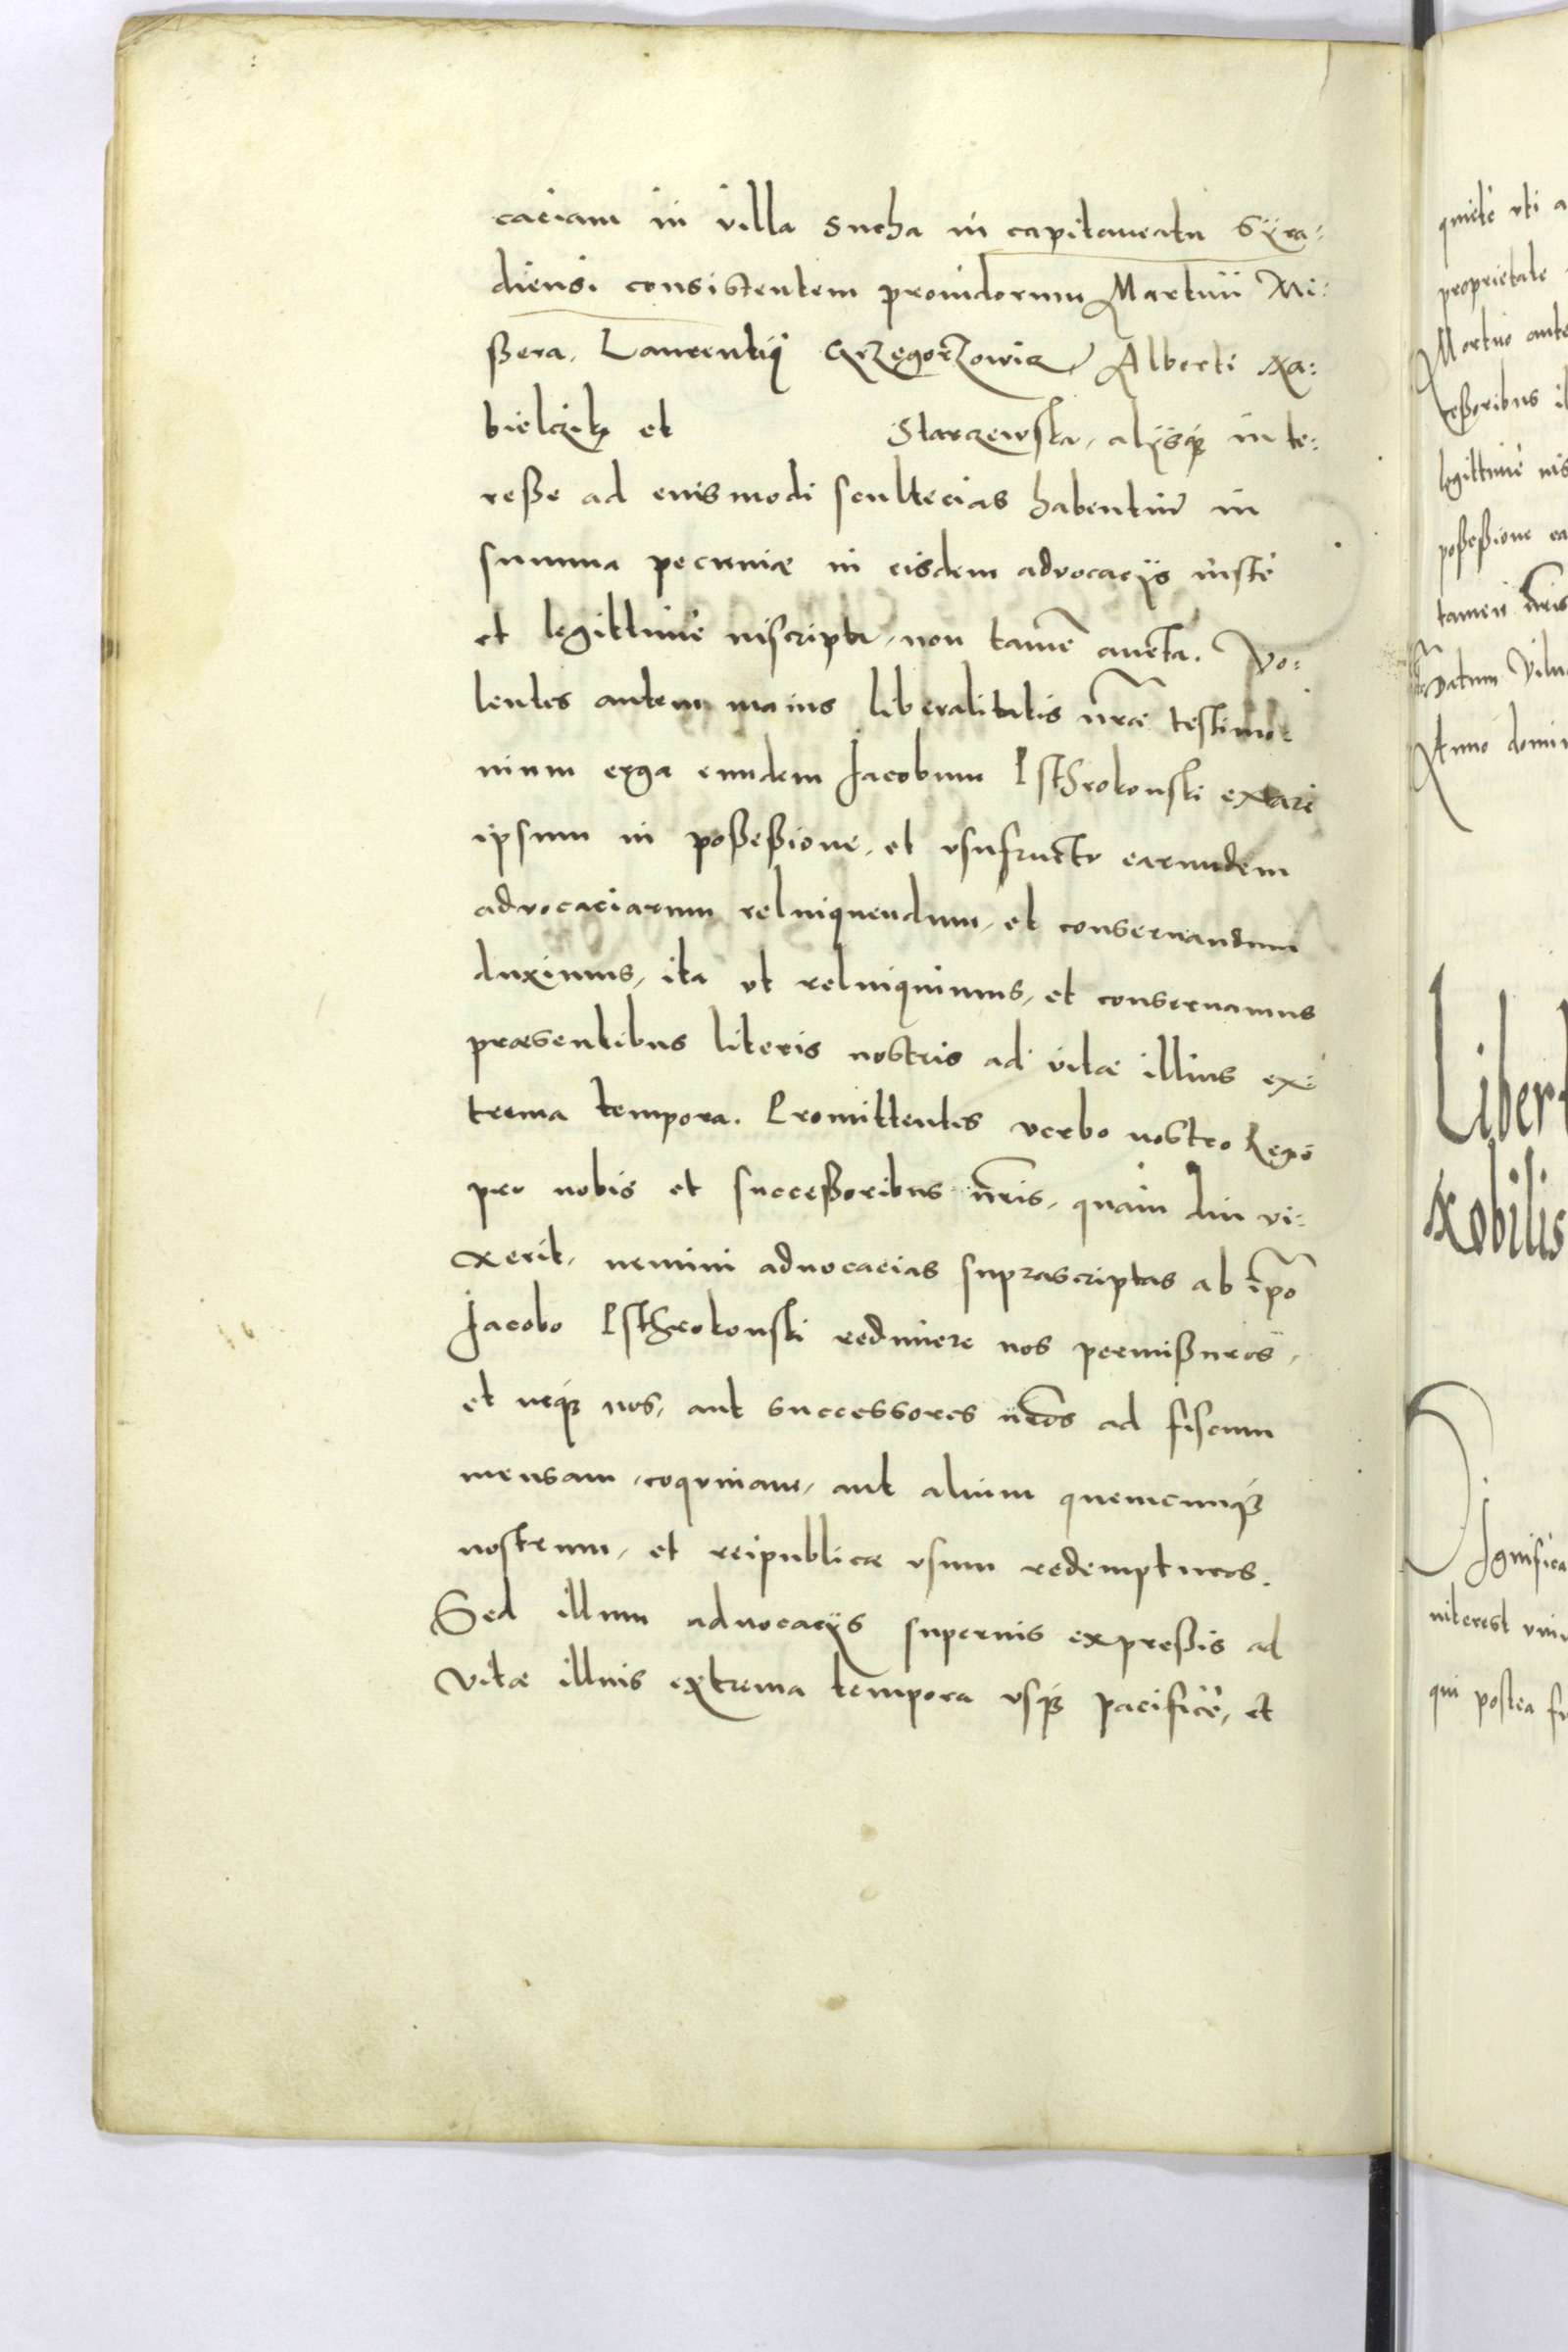 caciam in villa Sucha in capitaneatu Syra:
diensi. consistentem prouidorum Martini Mi:
ßera, Laurentij Grzegorzowicz Alberti Na:
bielczik et Starzewska, alijsq; inte:
reße ad euismodi scultecias habentium in
summa pecuniæ in eisdem advocacijs iustè
et legittimè inscripta, non tamẽ aucta. Vo:
lentes autem maius liberalitatis nr̃æ testimo:
nium erga eundem Jacobum Psthrokonski extare
ipsum in poßeßione, et vsufructu earundem
advocaciarum relinquendum, et conseruandum
duximus, ita vt relinquimus, et conseruamus
præsentibus literis nostris ad vitæ illius ex:
trema tempora. Promittentes verbo nostro Regio
pro nobis et succeßoribus nr̃is, quam diu vi:
xerit, nemini aduocacias suprascriptas ab ip̃o
Jacobo Psthrokonski redimere nos permißuros,
et neq; nos, aut successores nr̃os ad fiscum
mensam, coquinam, aut alium quemcumq;
nostrum, et reipublicæ vsum redempturos.
Sed illum aduocacijs superius expreßis ad
vitæ illius extrema tempora vsq; pacificè, et
quietè vti
proprietate
Mortuo
ceßoribus
legittimè
poßeßione
tamen nr̃is
Datum
Anno
Libert
Nobilis
Significa
interest
qui postea